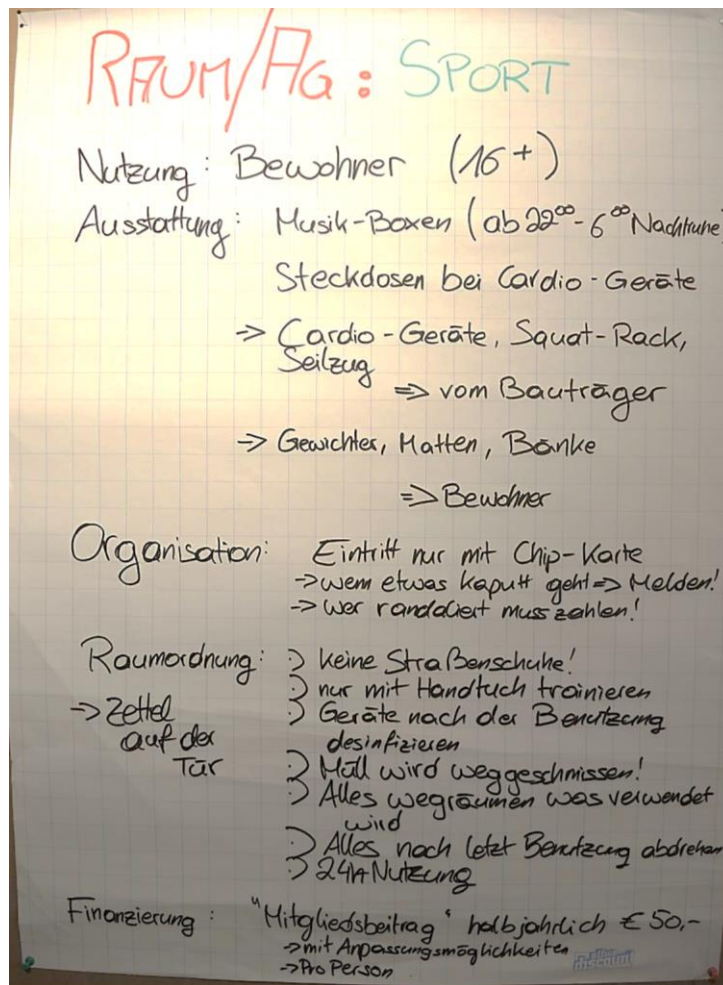 RAUM/AG: SPORT
Nutzung: Bewohner (16+)
Ausstattung: Musik-Boxen (ab 22⁰⁰-6⁰⁰ Nachtruhe
Steckdosen bei Cardio-Geräte
-> Cardio-Geräte, Squat-Rack,
Seilzug
=> vom Bauträger
-> Gewichter, Matten, Bänke
=> Bewohner
Organisation: Eintritt nur mit Chip-Karte
-> wem etwas kaputt geht => Melden!
-> wer randaliert muss zahlen!
Raumordnung: :) keine Straßenschuhe!
:) nur mit Handtuch trainieren
-> Zettel :) Geräte nach der Benutzung
auf der desinfizieren
Tür :) Müll wird weggeschmissen!
:) Alles wegräumen was verwendet
wird
:) Alles nach letzt Benutzung abdrehen
:) 24h Nutzung
Finanzierung: "Mitgliedsbeitrag" halbjährlich € 50,-
-> mit Anpassungsmöglichkeiten
-> Pro Person
discount